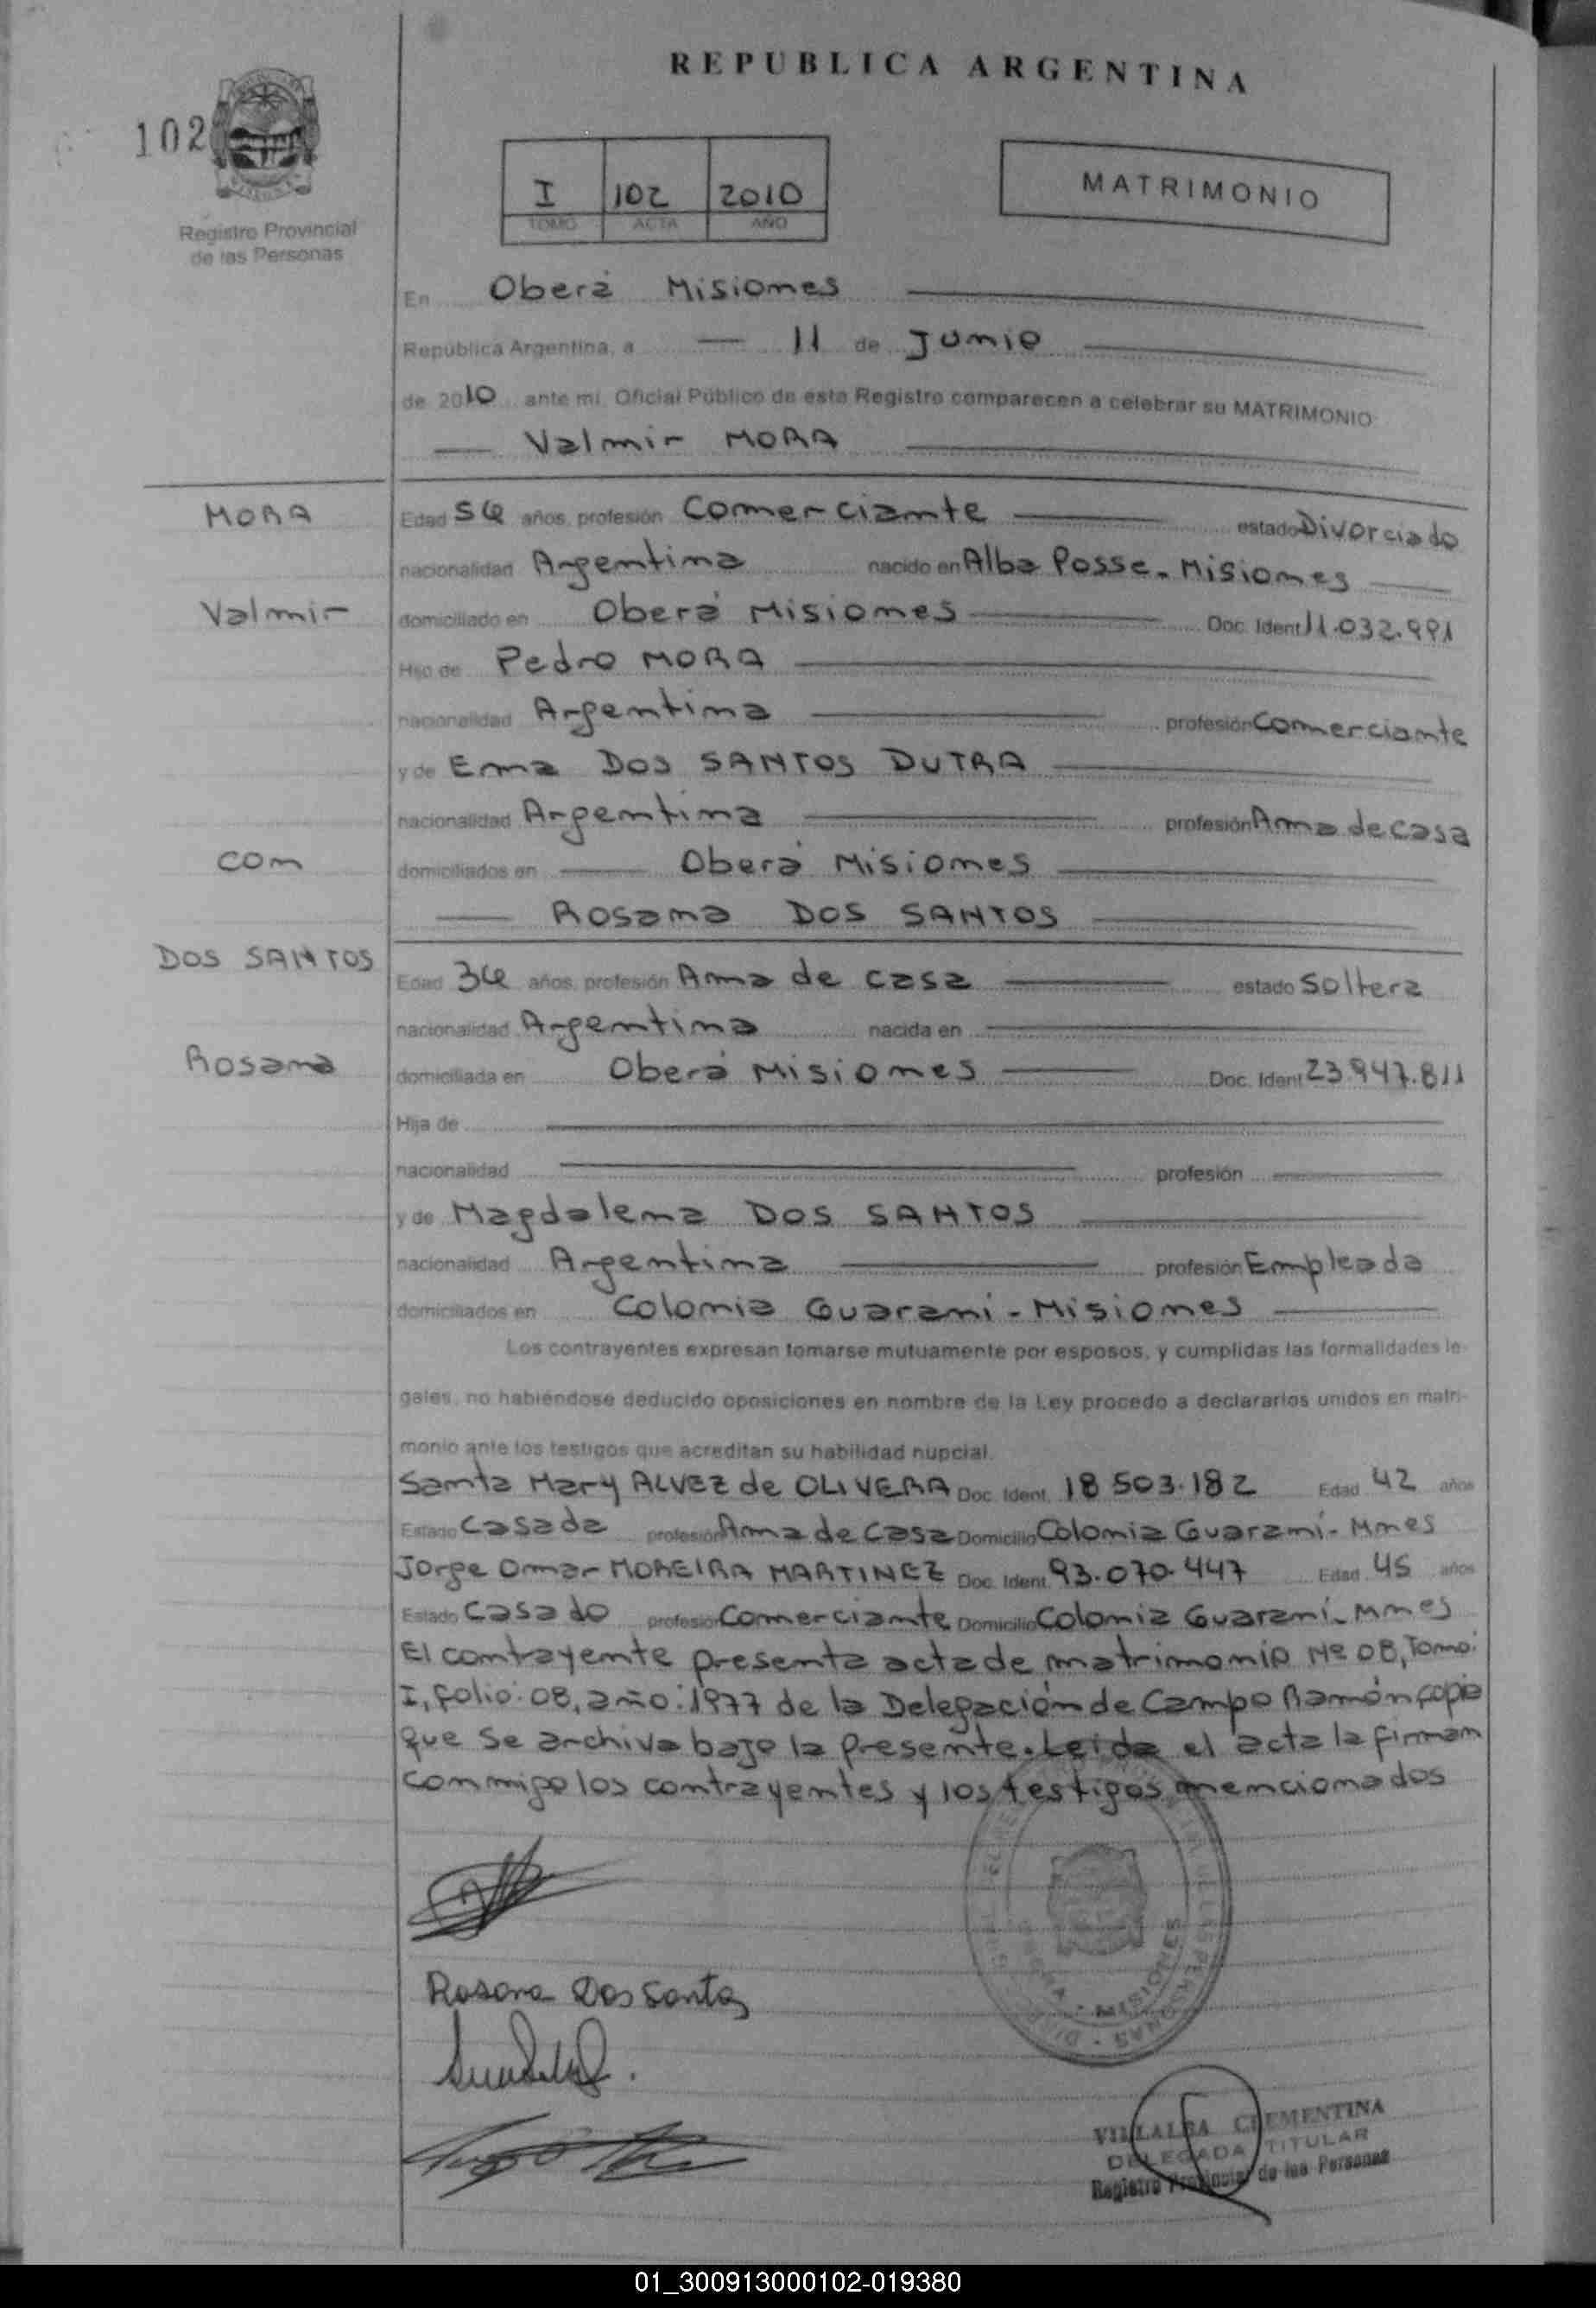 REPUBLICA ARGENTINA
102
Registro Provincial
de las Personas
I 102 2010
TOMO ACTA AÑO
MATRIMONIO
En Oberá Misiones
República Argentina, a 11 de Junio
de 2010 ante mi, Oficial Público de este Registro comparecen a celebrar su MATRIMONIO
Valmir MORA
MORA
Edad 54 años, profesión Comerciante estado Divorciado
nacionalidad Argentina nacido en Alba Posse - Misiones
Valmir
domiciliado en Oberá Misiones Doc. Ident 11.032.991
Hijo de Pedro MORA
nacionalidad Argentina profesión Comerciante
y de Ema DOS SANTOS DUTRA
nacionalidad Argentina profesión Ama de casa
con
domiciliados en Oberá Misiones
Rosana DOS SANTOS
DOS SANTOS
Edad 34 años, profesión Ama de casa estado Soltera
nacionalidad Argentina nacida en
Rosana
domiciliada en Oberá Misiones Doc. Ident 23.947.811
Hija de
nacionalidad profesión
y de Magdalena DOS SANTOS
nacionalidad Argentina profesión Empleada
domiciliados en Colonia Guaraní - Misiones
Los contrayentes expresan tomarse mutuamente por esposos, y cumplidas las formalidades le-
gales, no habiéndose deducido oposiciones en nombre de la Ley procedo a declararlos unidos en matri-
monio ante los testigos que acreditan su habilidad nupcial.
Santa Mary ALVEZ de OLIVERA Doc. Ident. 18 503.182 Edad 42 años
Estado Casada profesión Ama de Casa Domicilio Colonia Guaraní - Mnes
Jorge Omar MOREIRA MARTINEZ Doc. Ident. 93.070.447 Edad 45 años
Estado Casado profesión Comerciante Domicilio Colonia Guaraní - Mnes
El contrayente presenta acta de matrimonio Nº 08, Tomo:
I, folio: 08, año: 1977 de la Delegación de Campo Ramón copia
que se archiva bajo la presente. Leída el acta la firman
conmigo los contrayentes y los testigos mencionados
Rosana Dos Santos
MISIONES
VILLALBA CLEMENTINA
DELEGADA TITULAR
Registro Provincial de las Personas
01_300913000102-019380